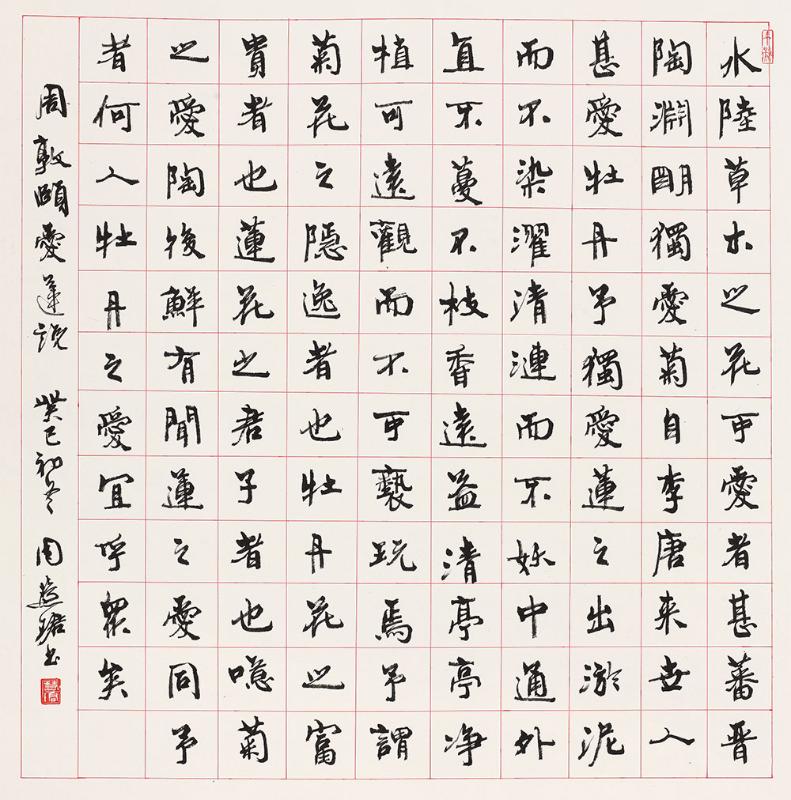 水陸草木之花可愛者甚蕃晋
陶淵明獨愛菊自李唐来世人
甚愛牡丹予獨愛蓮之出淤泥
而不染濯清漣而不妖中通外
直不蔓不枝香遠益清亭亭净
植可遠觀而不可褻玩焉予謂
菊花之隱逸者也牡丹花之富
貴者也蓮花之君子者也噫菊
之愛陶後鮮有聞蓮之愛同予
者何人牡丹之愛宜呼眾矣
周敦頤愛蓮說 癸巳初冬 周慧珺书